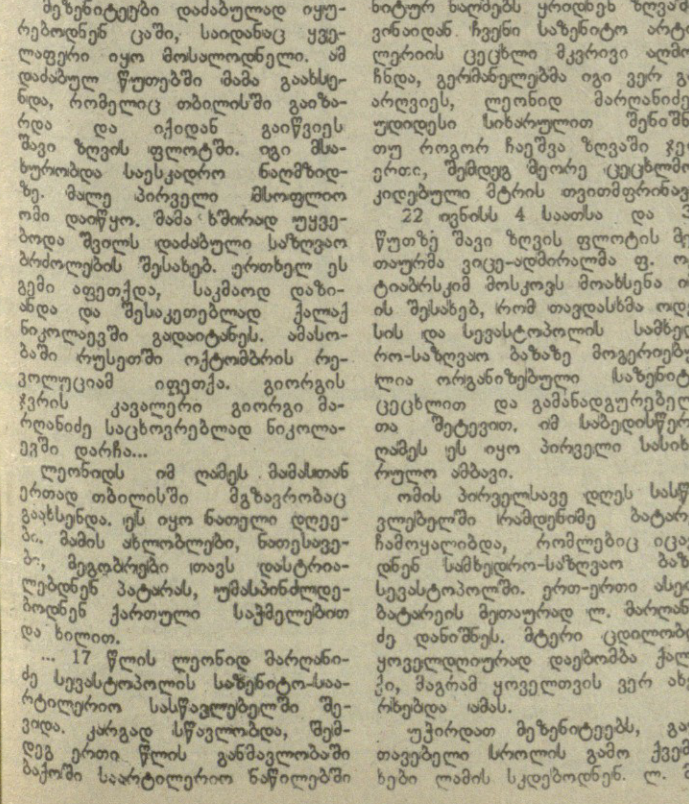 მეზენიტეები დაძაბულად იყუ-
რებოდნენ ცაში, საიდანაც ყვე-
ლაფერი იყო მოსალოდნელი. ამ
დაძაბულ წუთებში მამა გაახსე-
ნდა, რომელიც თბილისში გაიზა-
რდა და იქიდან გაიწვიეს
შავი ზღვის ფლოტში. იგი მსა-
ხურობდა საესკადრო ნაღმზიდ-
ზე. მალე პირველი მსოფლიო
ომი დაიწყო. მამა ხშირად უყვე-
ბოდა შვილს დაძაბული საზღვაო
ბრძოლების შესახებ. ერთხელ ეს
გემი აფეთქდა, საკმაოდ დაზი-
ანდა და შესაკეთებლად ქალაქ
ნიკოლაევში გადაიტანეს. ამასო-
ბაში რუსეთში ოქტომბრის რე-
ვოლუციამ იფეთქა. გიორგის
ჯვრის კავალერი გიორგი მა-
რღანიძე საცხოვრებლად ნიკოლა-
ევში დარჩა...
ლეონიდს იმ ღამეს მამასთან
ერთად თბილისში მგზავრობაც
გაახსენდა. ეს იყო ნათელი დღეე-
ბი. მამის ახლობლები, ნათესავე-
ბი, მეგობრები თავს დასტრია-
ლებდნენ პატარას, უმასპინძლდე-
ბოდნენ ქართული საჭმელებით
და ხილით.
... 17 წლის ლეონიდ მარღანი-
ძე სევასტოპოლის საზენიტო-საა-
რტილერიო სასწავლებელში შე-
ვიდა. კარგად სწავლობდა, შემ-
დეგ ერთი წლის განმავლობაში
ბაქოში საარტილერიო ნაწილებში
ნიტურ ნაღმებს ყრიდნენ ზღვაში
ვინაიდან ჩვენი საზენიტო არტი
ლერიის ცეცხლი მკვრივი აღმო
ჩნდა, გერმანელებმა იგი ვერ გა
არღვიეს, ლეონიდ მარღანიძე
უდიდესი სიხარულით შენიშნ
თუ როგორ ჩაეშვა ზღვაში ჯე
ერთი, შემდეგ მეორე ცეცხლმო
კიდებული მტრის თვითმფრინავ
22 ივნისს 4 საათსა და
წუთზე შავი ზღვის ფლოტის მე
თაურმა ვიცე-ადმირალმა ფ. ო
ტიაბრსკიმ მოსკოვს მოახსენა
ის შესახებ, რომ თავდასხმა ოდ
სის და სევასტოპოლის სამხედ
რო-საზღვაო ბაზაზე მოგერიებუ
ლია ორგანიზებული საზენიტ
ცეცხლით და გამანადგურებელ
თა შეტევით. იმ საბედისწერ
ღამეს ეს იყო პირველი სასიხ
რულო ამბავი.
ომის პირველსავე დღეს სასწ
ვლებელში რამდენიმე ბატარ
ჩამოყალიბდა, რომლებიც იცა
დნენ სამხედრო-საზღვაო ბაზ
სევასტოპოლში. ერთ-ერთი ასე
ბატარეის მეთაურად ლ. მარღან
ძე დანიშნეს. მტერი ცდილობ
ყოველდღიურად დაებომბა ქალ
ქი, მაგრამ ყოველთვის ვერ ახ
რხებდა ამას.
უჭირდათ მეზენიტეებს, გა
თავებელი სროლის გამო ქვემ
ხები ლამის სკდებოდნენ. ლ.